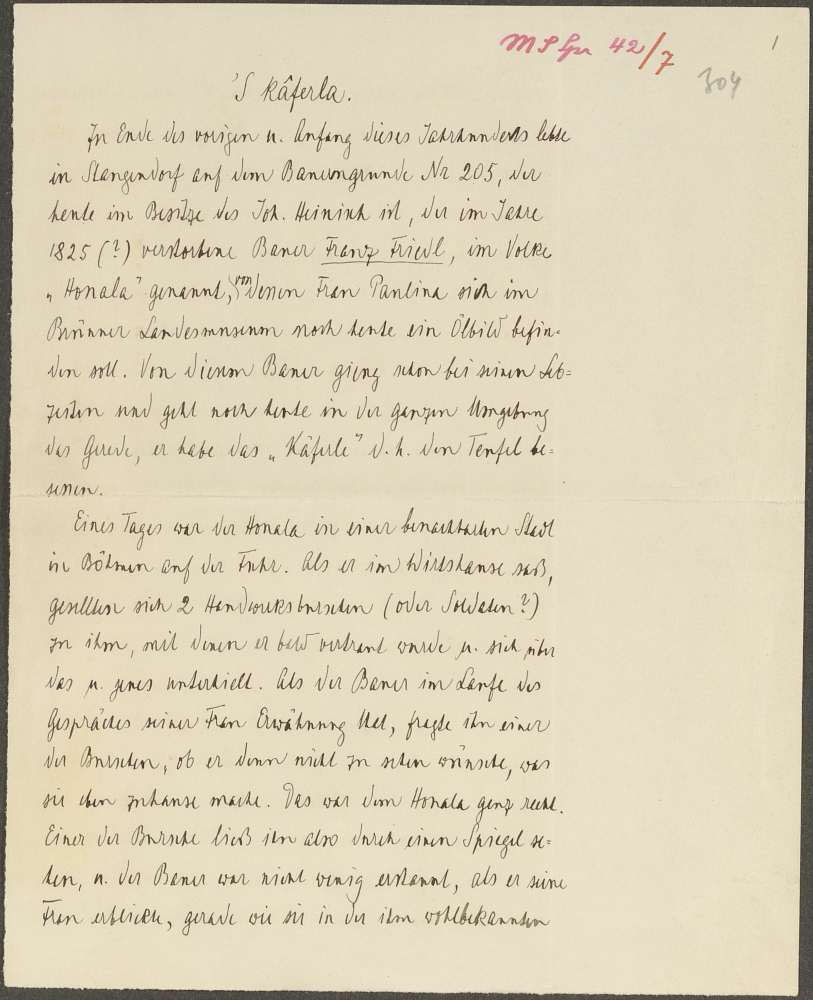 MS Spr 42/7
1
304
'S Kâferla.
In Ende des vorigen u. Anfang dieses Jahrhunderts lebte
in Stangendorf auf dem Bauerngrunde Nr 205, der
heute im Besitze des Joh. Heinisch ist, der im Jahre
1825 (?) verstorbene Bauer Franz Friedl, im Volke
„Honala" genannt, von dessen Frau Paulina sich im
Brünner Landesmuseum noch heute ein Ölbild befin=
den soll. Von diesem Bauer gieng schon bei seinen Leb=
zeiten und geht noch heute in der ganzen Umgebung
das Gerede, er habe das „Kâferle" d. h. den Teufel be=
sessen.
Eines Tages war der Honala in einer benachbarten Stadt
in Böhmen auf der Fuhr. Als er im Wirtshause saß,
gesellten sich 2 Handwerksburschen (oder Soldaten?)
zu ihm, mit denen er bald vertraut wurde u. sich über
das u. jenes unterhielt. Als der Bauer im Laufe des
Gespräches seiner Frau Erwähnung that, fragte ihn einer
der Burschen, ob er denn nicht zu sehen wünsche, was
sie eben zuhause mache. Das war dem Honala ganz recht.
Einer der Bursche ließ ihn also durch einen Spiegel se=
hen, u. der Bauer war nicht wenig erstaunt, als er seine
Frau erblickte, gerade wie sie in der ihm wohlbekannten